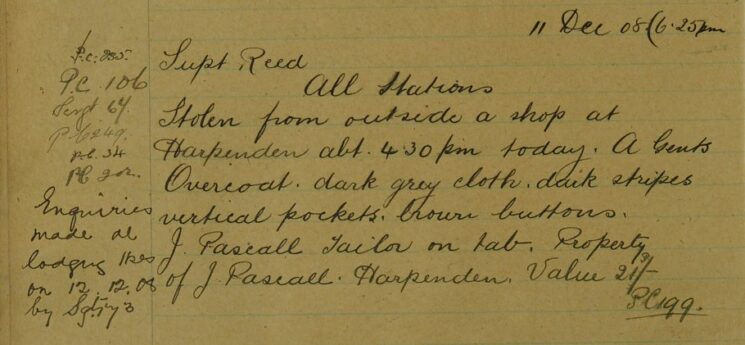 11 Dec 08 (6.25pm
Supt Reed
All Stations
Stolen from outside a shop at
Harpenden abt. 4.30 pm today. A Gents
Overcoat. dark grey cloth. dark stripes
vertical pockets. brown buttons.
J. Pascall Tailor on tab. Property
of J. Pascall. Harpenden. Value 21/-
PC 199.
P.C. 285.
P.C. 106
Sergt 64.
P.C. 249.
P.C. 34
PC 202.
Enquiries
made at
lodging Hses
on 12.12.08
by